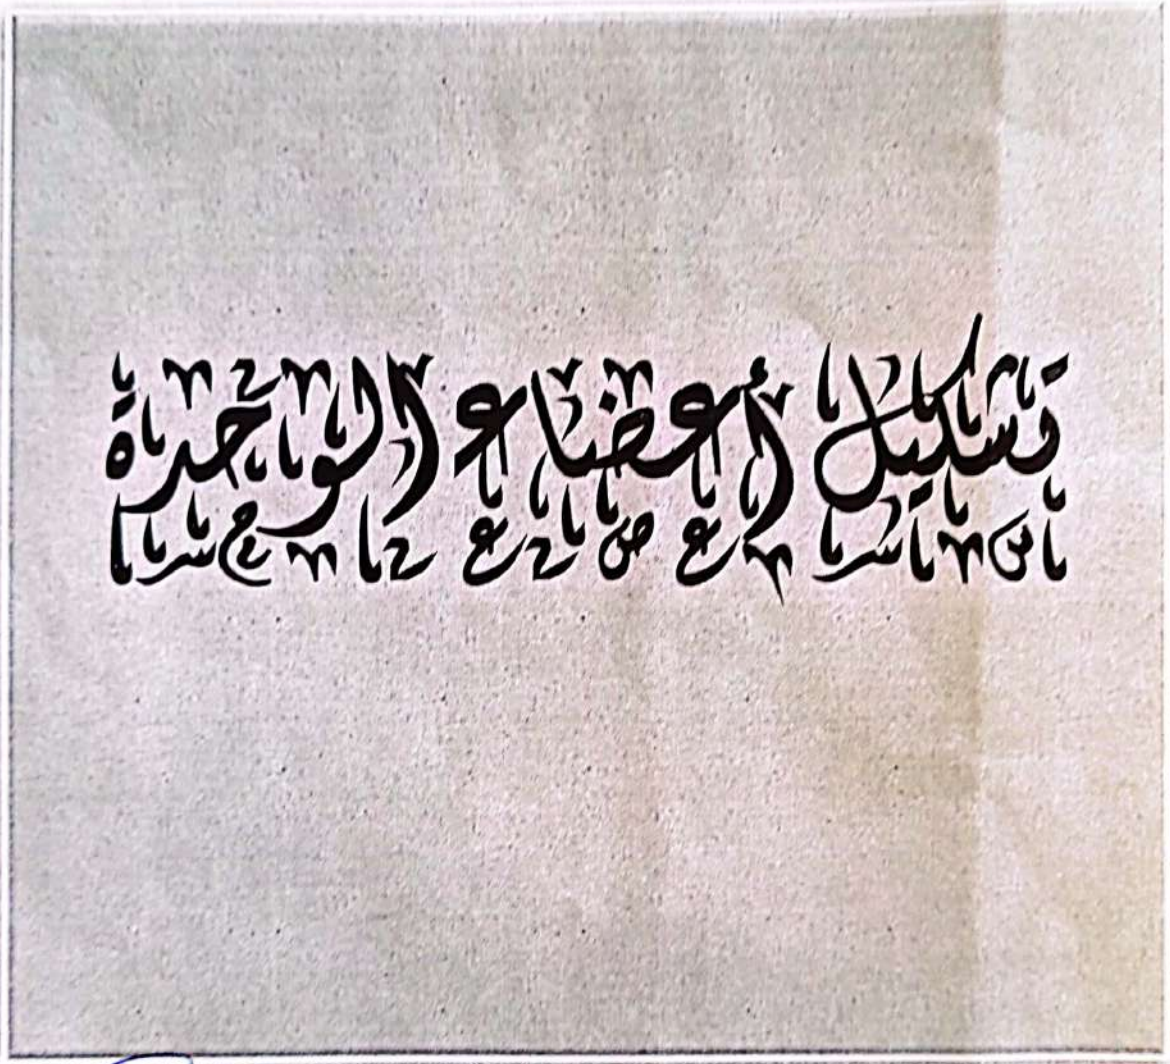 تشكيل أعضاء الوحدة